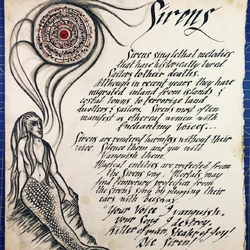 Sirens
Sirens sing lethal melodies
that have historically lured
Sailors to their deaths.
Although in recent years they have
migrated inland from islands &
coastal towns to terrorize land
dwellers & sailors. Sirens most often
manifest as ethereal women with
Enchanting Voices...
Sirens are rendered harmless without their
voice. Silence them and you will
Vanquish them.
Magical entities are protected from
the Siren song. Mortals may
find temporary protection from
the siren's song by plugging their
ears with beeswax.
Your Voice I vanquish,
your song I destroy.
Killer of man, Stealer of Joy!
Die Siren!